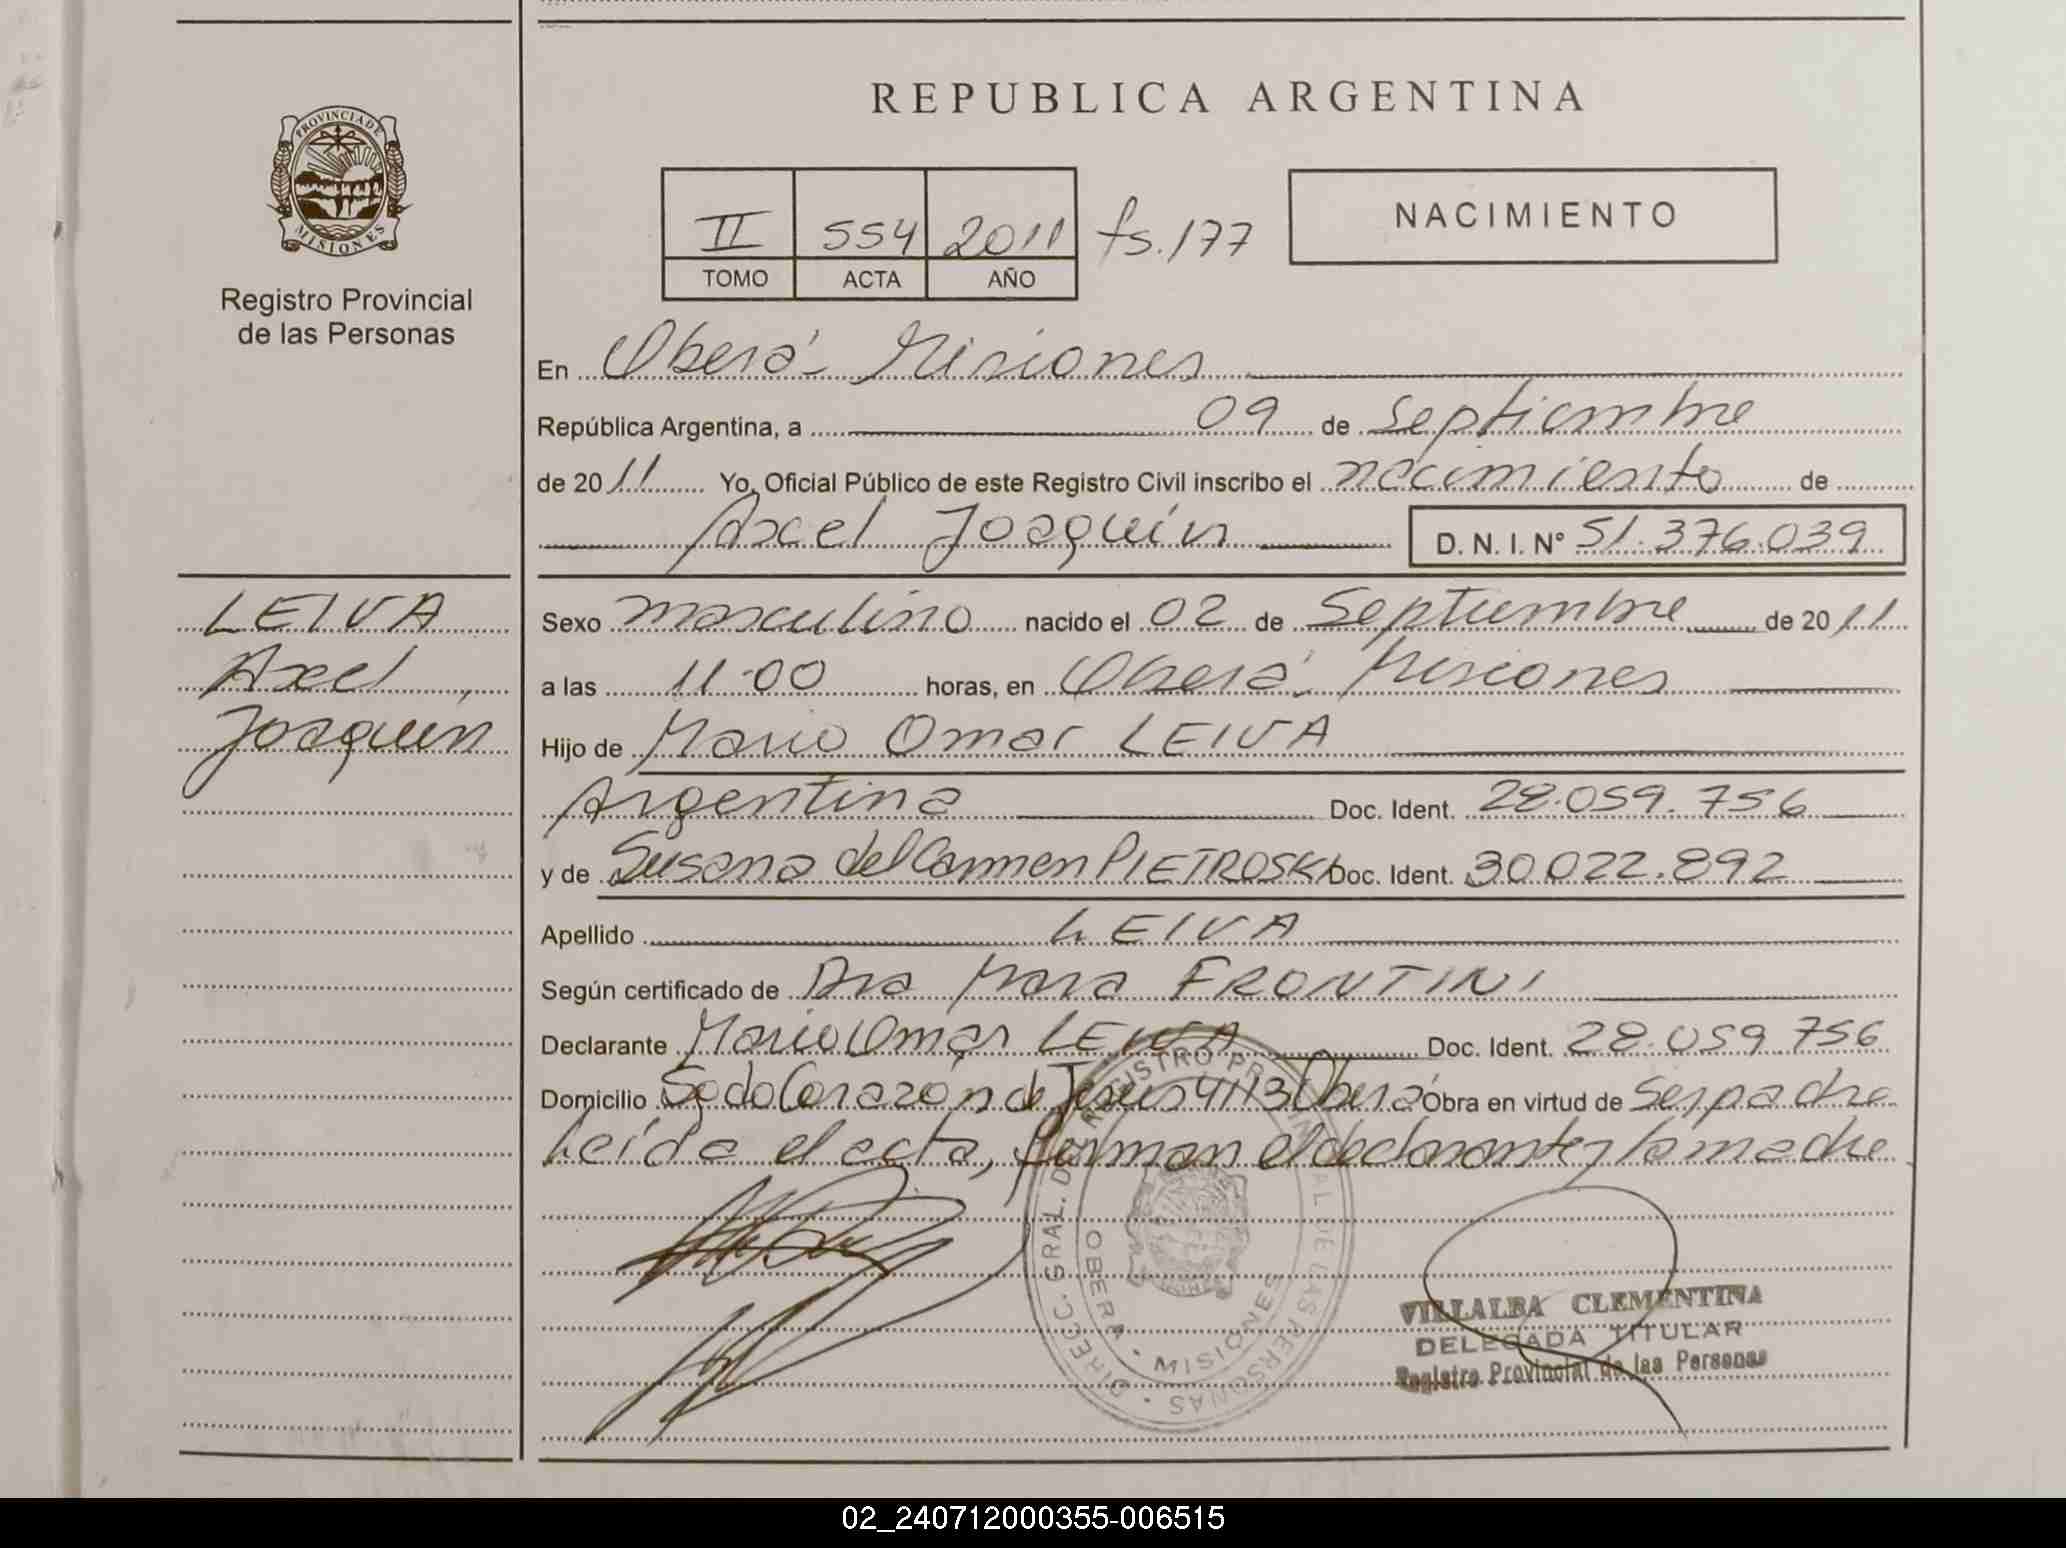 REPUBLICA ARGENTINA
PROVINCIA DE
MISIONES
Registro Provincial
de las Personas
II 554 2011 fs. 177
TOMO ACTA AÑO
NACIMIENTO
En Oberá - Misiones
República Argentina, a 09 de Septiembre
de 2011 Yo, Oficial Público de este Registro Civil inscribo el nacimiento de
Axel Joaquín D. N. I. N° 51.376.039
LEIVA
Axel
Joaquín
Sexo masculino nacido el 02 de Septiembre de 2011
a las 11.00 horas, en Oberá - Misiones
Hijo de Mario Omar LEIVA
Argentina Doc. Ident. 28.059.756
y de Susana del Carmen PIETROSKI Doc. Ident. 30.022.892
Apellido LEIVA
Según certificado de Dra Mara FRONTINI
Declarante Mario Omar LEIVA Doc. Ident. 28.059.756
Domicilio Sgdo Corazón de Jesús 4113 Oberá Obra en virtud de ser padre
Leída el acta, firman el declarante y la madre
DIRECC. GRAL. DEL REGISTRO PROVINCIAL DE LAS PERSONAS
OBERA • MISIONES
VILLALBA CLEMENTINA
DELEGADA TITULAR
Registro Provincial de las Personas
02_240712000355-006515